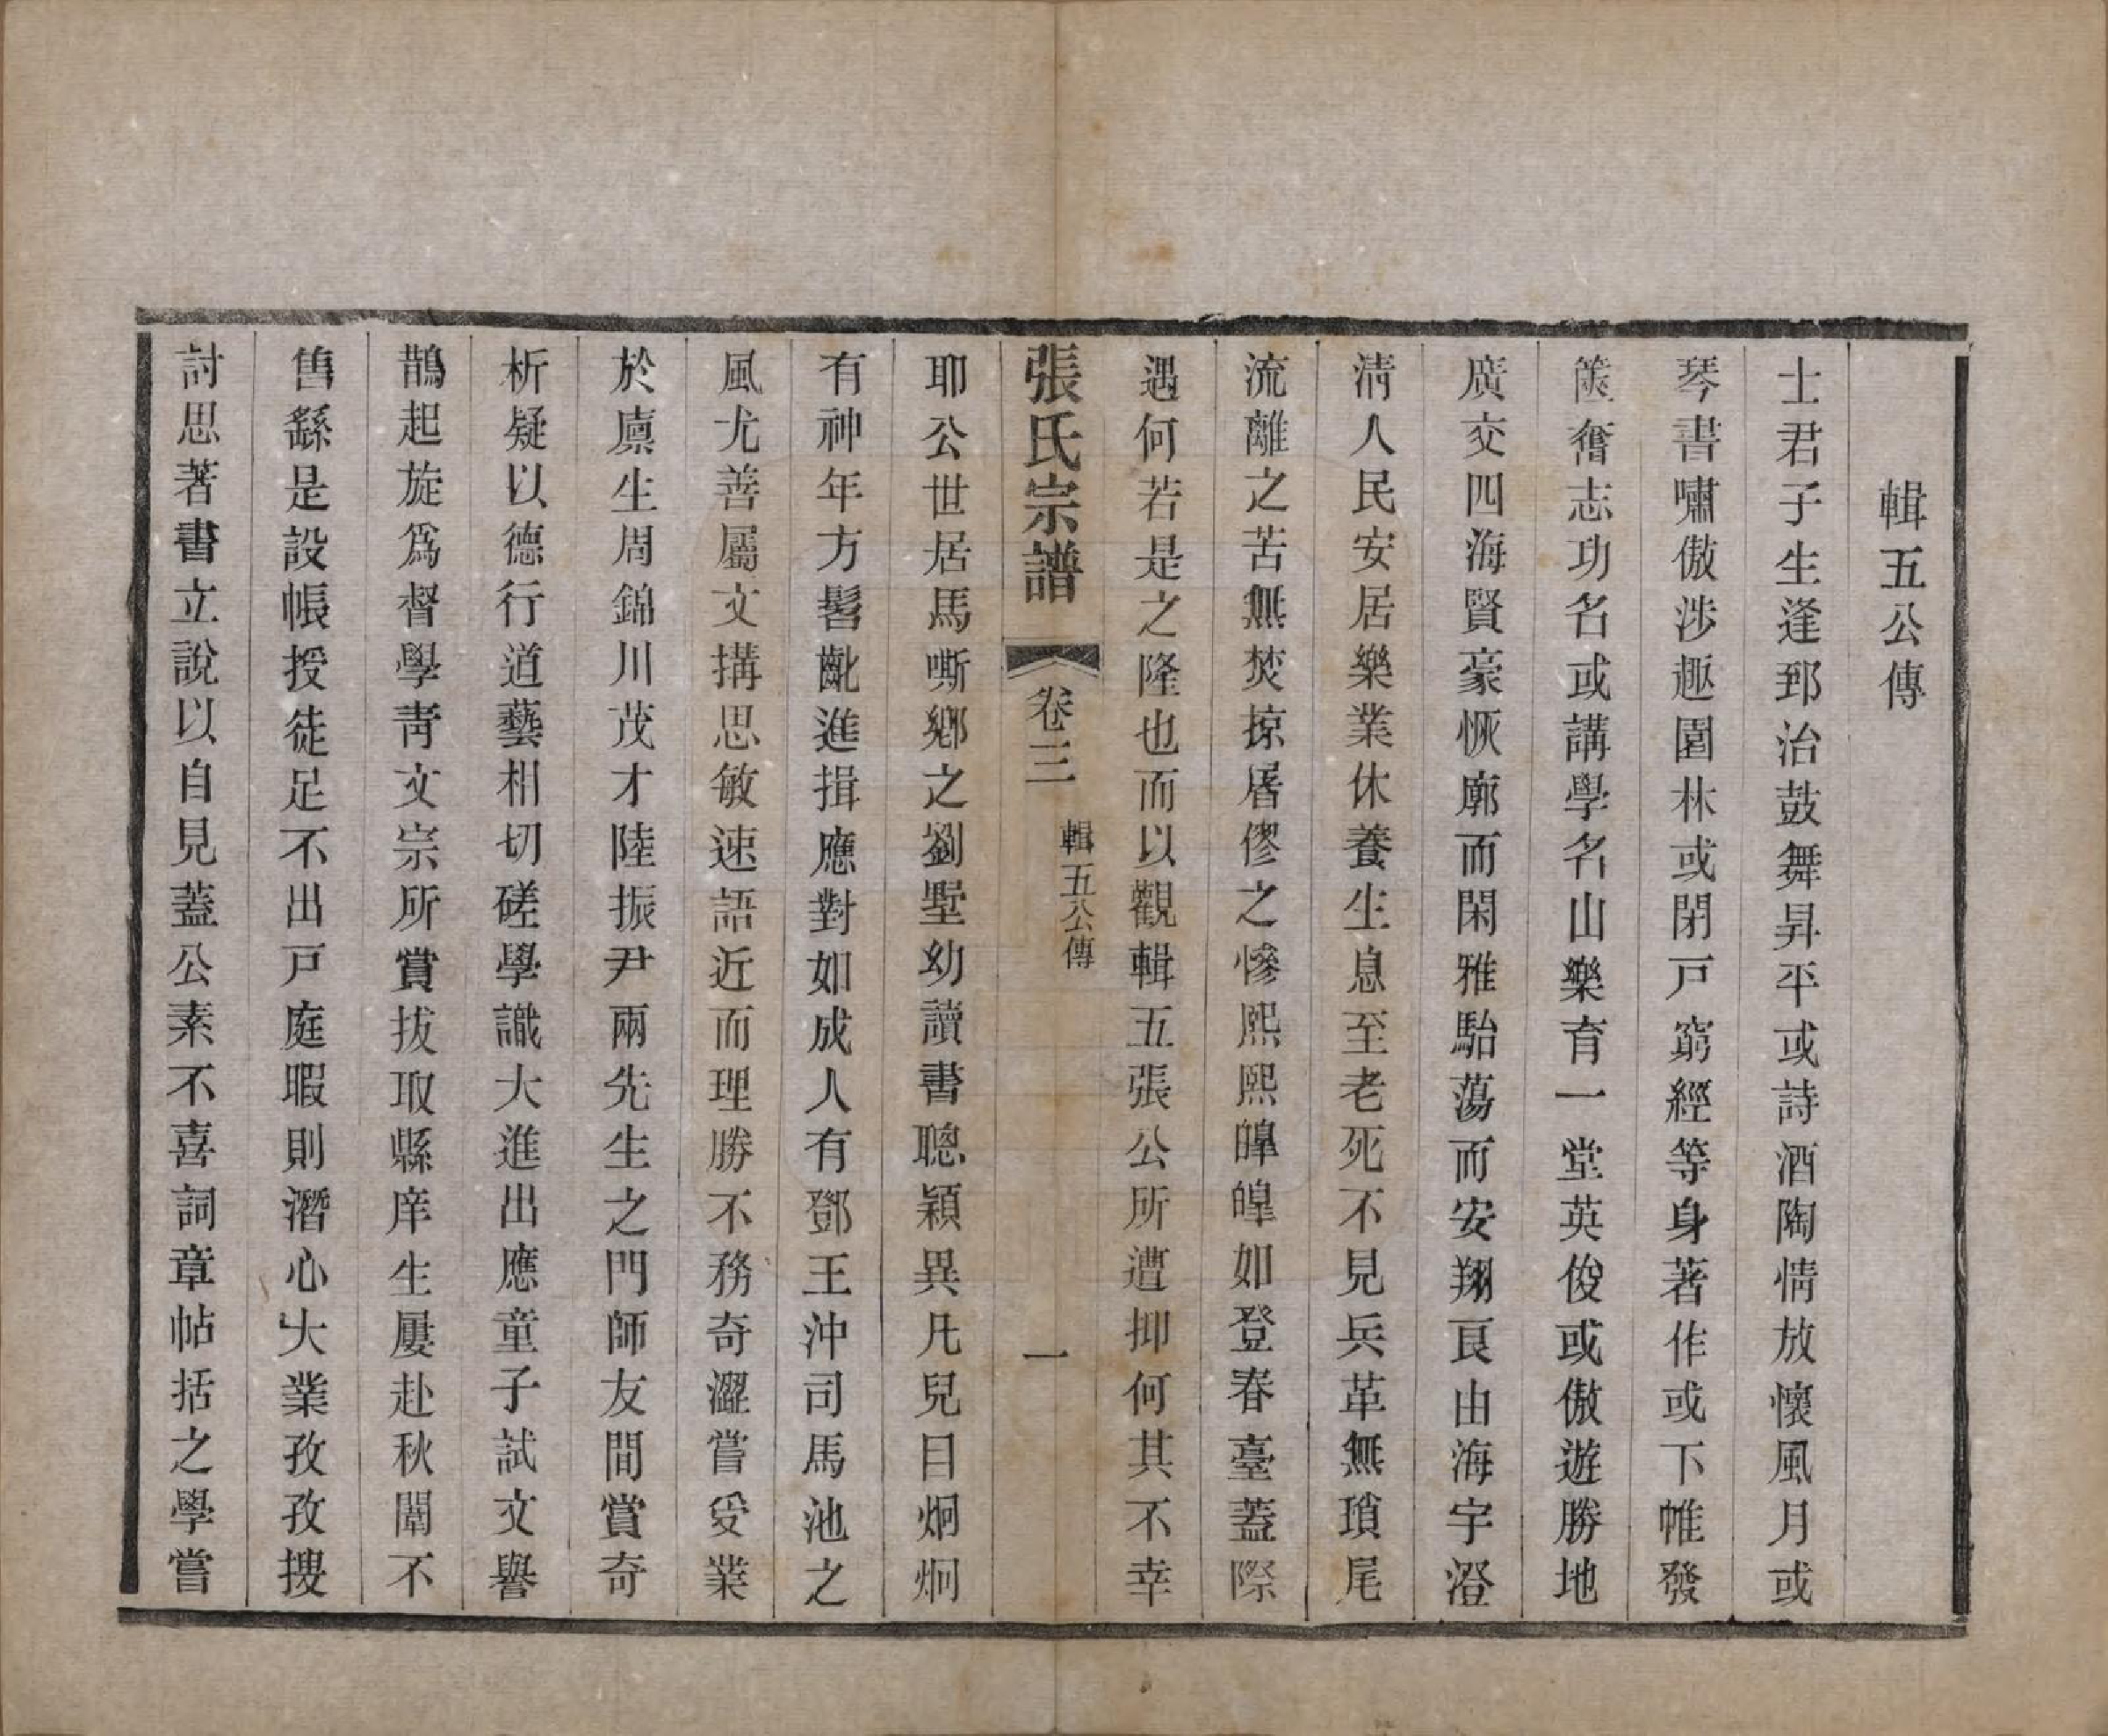 輯五公傳
士君子生逢郅治鼓舞昇平或詩酒陶情放懷風月或
琴書嘯傲涉趣園林或閉戸窮經等身著作或下帷發
篋奮志功名或講學名山樂育一堂英俊或傲遊勝地
廣交四海賢豪恢廓而閑雅駘蕩而安翔良由海宇澄
淸人民安居樂業休養生息至老死不見兵革無瑣尾
流離之苦無焚掠屠僇之慘熙熙皥皥如登春臺蓋際
遇何若是之隆也而以觀輯五張公所遭抑何其不幸
張氏宗譜 卷三 輯五公傳 一
耶公世居馬嘶鄉之劉墅幼讀書聰穎異凡兒目炯炯
有神年方髫齔進揖應對如成人有鄧王沖司馬池之
風尤善屬文搆思敏速語近而理勝不務奇澀嘗受業
於廩生周錦川茂才陸振尹兩先生之門師友間賞奇
析疑以德行道藝相切磋學識大進出應童子試文譽
鵲起旋爲督學靑文宗所賞拔取縣庠生屢赴秋闈不
售繇是設帳授徒足不出戸庭暇則潛心大業孜孜搜
討思著書立說以自見蓋公素不喜詞章帖括之學嘗